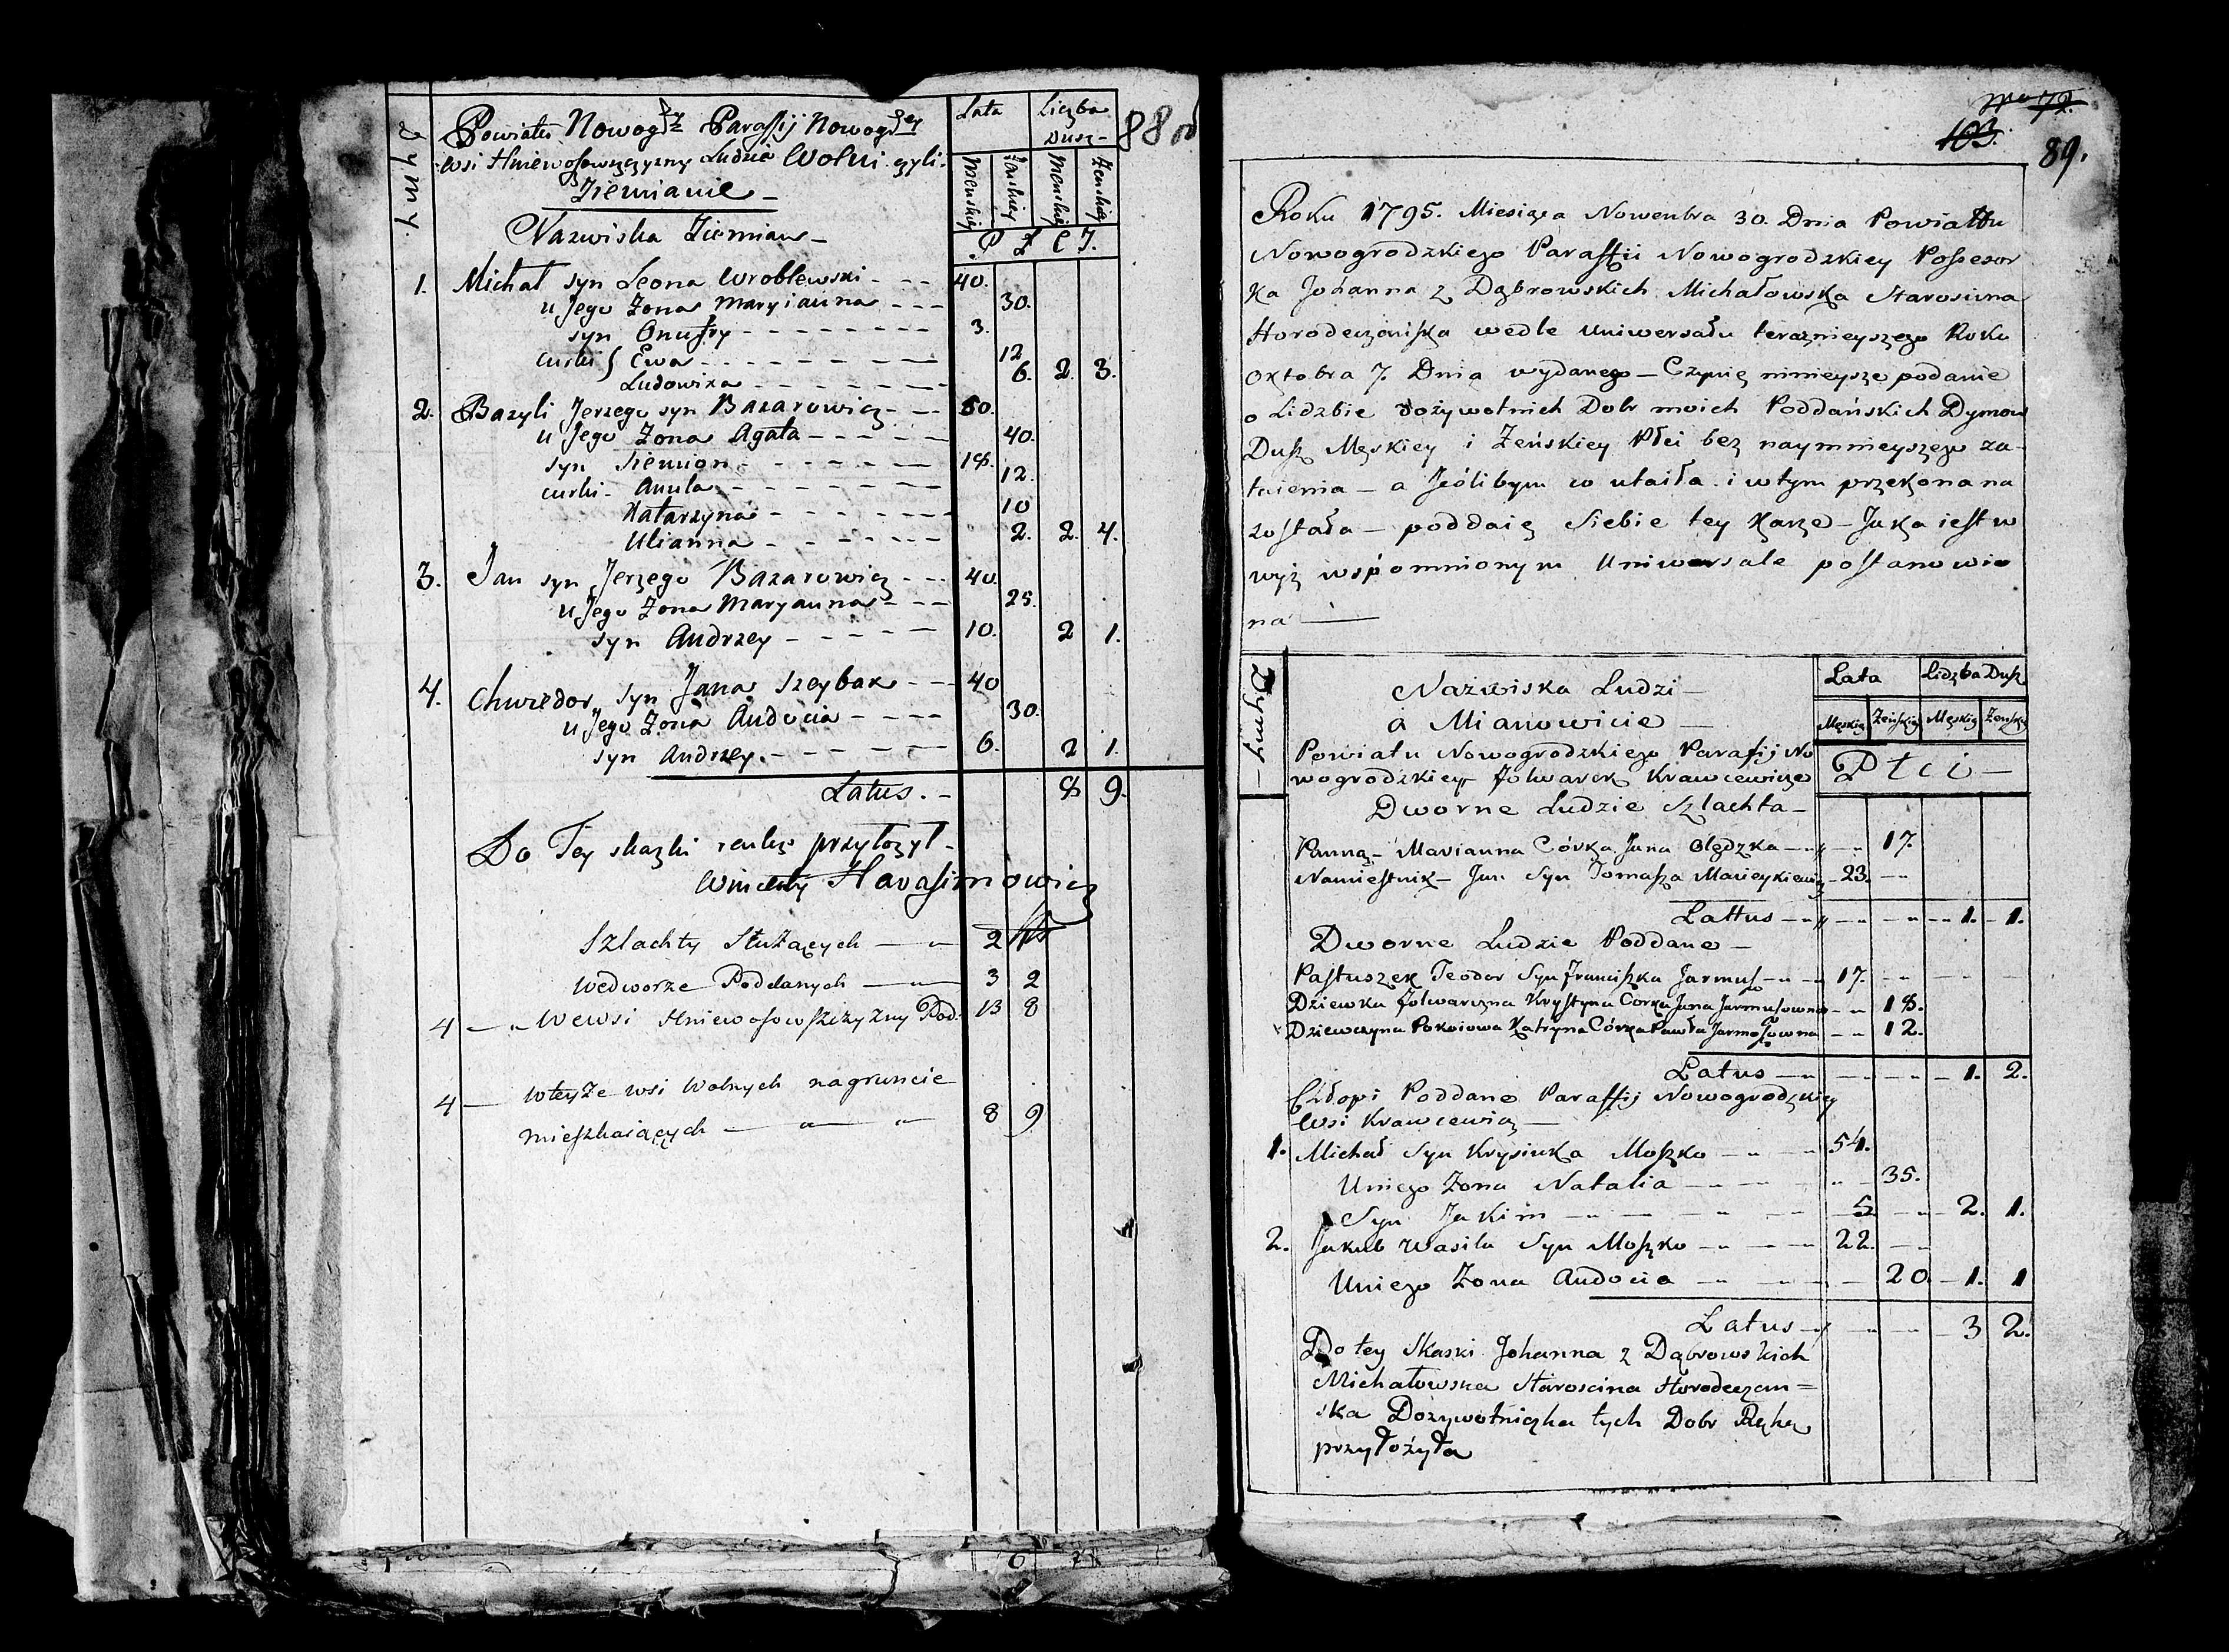 Dymy
Powiatu Nowogdz Parafij Nowogdzey
wsi Hniewosowszczyzny Ludzie Wolni czyli
Ziemianie
Lata Liczba Dusz
88 об
Menskiej Żenskiej Menskiej Żenskiej
Nazwiska Ziemian
P Ł C I.
1. Michał syn Leona Wroblewski 40.
u Jego Zona Maryianna 30.
syn Onufry 3.
curki Ewa 12
Ludowika 6. 2. 3.
2. Bazyli Jerzego syn Bazarowicz 50.
u Jego Zona Agata 40.
syn Siemion 18.
curki Anula 12.
Katarzyna 10
Ulianna 2. 2. 4.
3. Jan syn Jerzego Bazarowicz 40.
u Jego Zona Maryanna 25.
syn Andrzey 10. 2 1.
4. Chwiedor syn Jana Szeybak 40
u Jego Zona Audocia 30.
syn Andrzey 6. 2 1.
Latus. 8 9.
Do Tey skazki renke przyłożył
Wincenty Harasimowicz
Szlachty Służących 2
We dworze Poddanych 3 2
4 We wsi Hniewosowszczyzny Pod: 13 8
4 w teyże wsi Wolnych na gruncie
mieszkaiących 8 9
72.
103.
89.
Roku 1795. Miesiąca Nowembra 30. Dnia Powiattu
Nowogrodzkiego Paraffii Nowogrodzkiey Possesor
ka Johanna z Dąbrowskich Michałowska Starosina
Horodeczańska wedle Uniwersału teraznieyszego Roku
Oktobra 7. Dnia wydanego — Czynię ninieysze podanie
o Lidzbie dożywotnich Dobr moich Poddańskich Dymow
Dusz Męskiey i Żeńskiey Płci bez naymnieyszego za-
taienia — a Jeślibym co utaiła i w tym przekonana
została — poddaię Siebie tey karze — Jaka iest w
wyż wspomnionym Uniwersale postanowio
na —
Dymy
Nazwiska Ludzi
a Mianowicie
Lata Lidzba Dusz
Męskie Żeńskie Męskie Żeńskie
Powiatu Nowogrodzkiego Parafij No
wogrodzkiey folwarek Krawcewicze
Płci
Dworne Ludzie Szlachta
Panna Marianna Córka Jana Olędzka 17.
Namiestnik Jan Syn Tomasza Macieykiewicz 23.
Lattus 1. 1.
Dworne Ludzie Poddane
Pastuszek Teodor Syn Franciszka Jarmusz 17.
Dziewka folwarczna Krystyna Corka Jana Jarmusowna 18.
Dziewczyna Pokoiowa Katryna Córka Pawła Jarmosowna 12.
Latus 1. 2.
Chłopi Poddane Paraffij Nowogrodzkiey
Wsi Krawcewicz
1. Michał Syn Krysiuka Moszko 54.
U niego Zona Natalia 35.
Syn Jakim 5 2. 1.
2. Jakub Wasila Syn Moszko 22.
U niego Zona Audocia 20 1. 1
Latus 3 2.
Do tey Skaski Johanna z Dąbrowskich
Michałowska Staroscina Horodeczan=
ska Dożywotniczka tych Dobr Rękę
przyłożyła